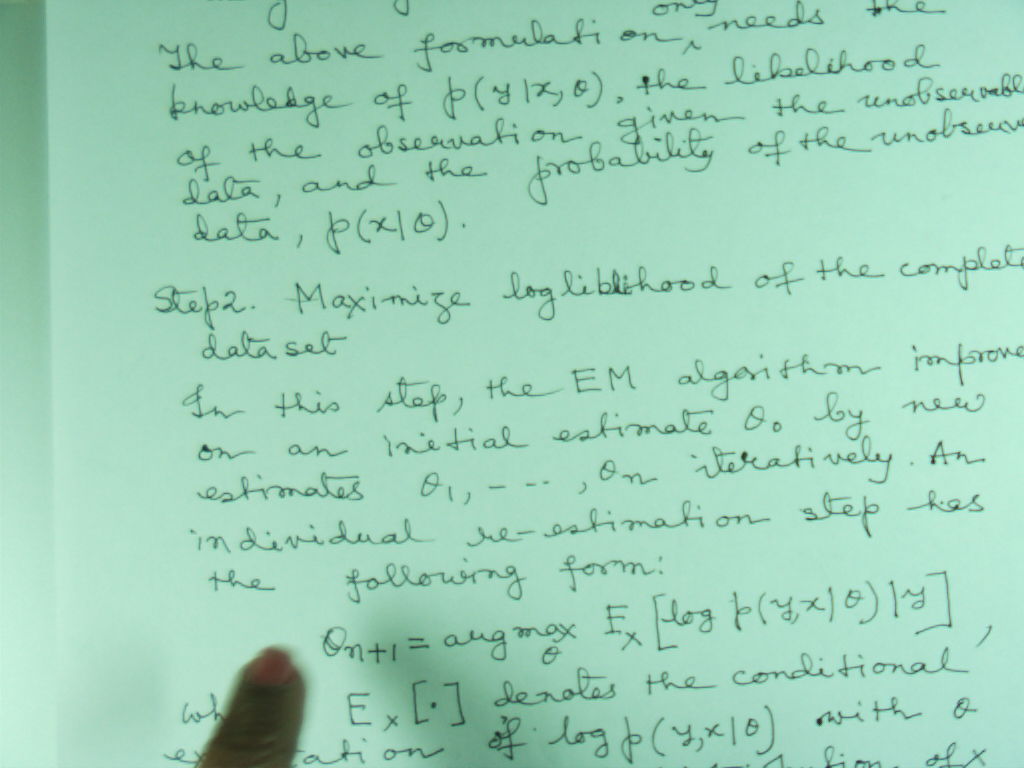 only
The above formulation ^ needs the
knowledge of p(y|x,θ), the likelihood
of the observation given the unobservable
data, and the probability of the unobserv
data, p(x|θ).
Step2. Maximize log liklihood of the complete
data set
In this step, the EM algorithm improve
on an inetial estimate θ₀ by new
estimates θ₁, - - - , θn iteratively. An
individual re-estimation step has
the following form:
θn+1 = arg max θ Ex [log p(y,x|θ)|y] ,
wh Ex [·] denotes the conditional
ex ation of log p(y,x|θ) with θ
of x